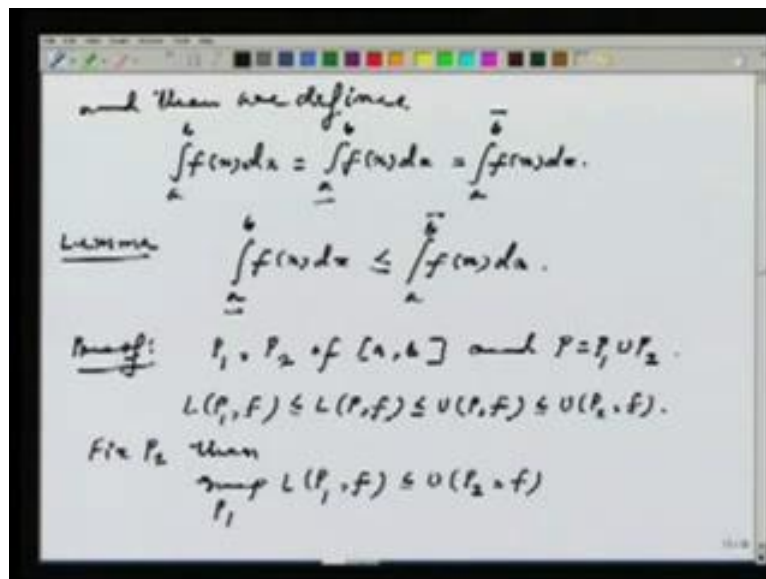 and then we define
∫_a^b f(x)dx = ∫_{\underline{a}}^b f(x)dx = ∫_a^{\overline{b}} f(x)dx.
Lemma ∫_{\underline{a}}^b f(x)dx ≤ ∫_a^{\overline{b}} f(x)dx.
Proof: P₁, P₂ of [a,b] and P = P₁ ∪ P₂.
L(P₁,f) ≤ L(P,f) ≤ U(P,f) ≤ U(P₂,f).
Fix P₂ then
sup_{P₁} L(P₁,f) ≤ U(P₂,f)